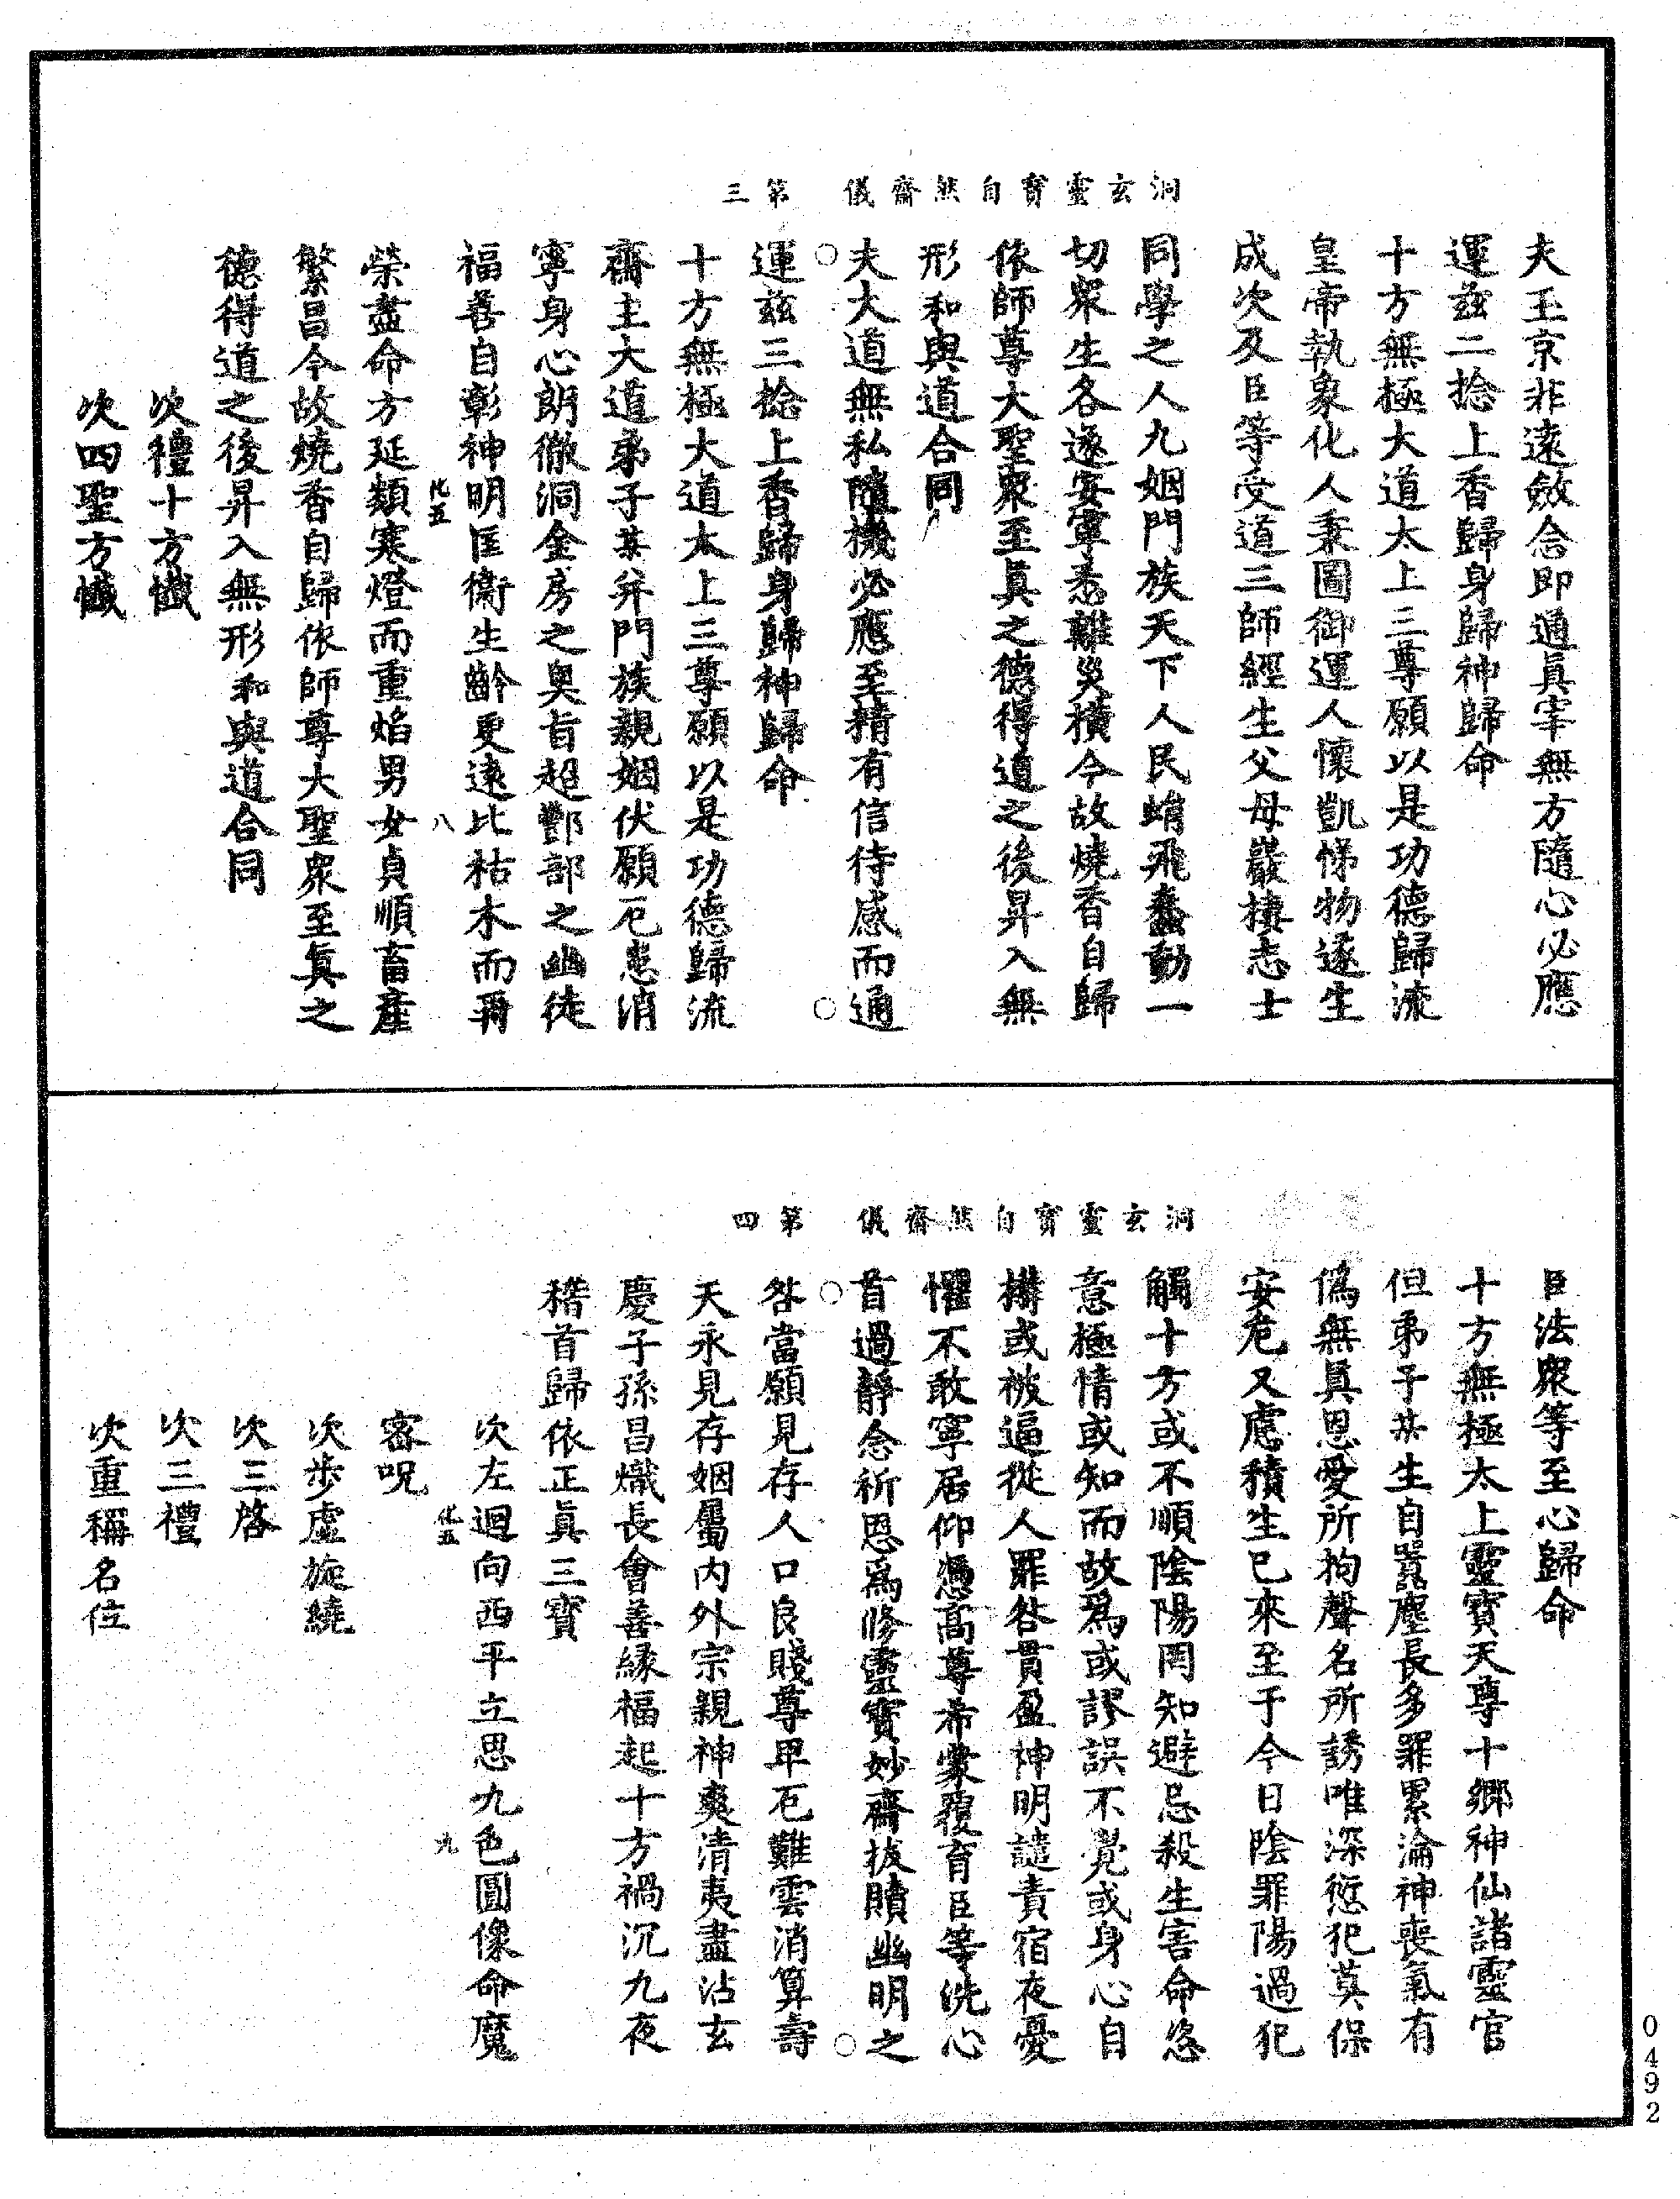 洞玄靈寶自然齋儀　第三
夫玉京非遠斂念即通眞宰無方隨心必應
運兹二捻上香歸身歸神歸命
十方無極大道太上三尊願以是功德歸流
皇帝執象化人秉圖御運人懷凱悌物遂生
成次及臣等受道三師經生父母巖棲志士
同學之人九姻門族天下人民蜎飛蠢動一
切眾生各遂安寧悉離災橫今故燒香自歸
依師尊大聖眾至眞之德得道之後昇入無
形和與道合同
夫大道無私隨機必應至精有信待感而通
運兹三捻上香歸身歸神歸命
十方無極大道太上三尊願以是功德歸流
齋主大道弟子某并門族親姻伏願厄患消
寧身心朗徹洞金房之奥旨超酆部之幽徒
福善自彰神明匡衞生齡更遠比枯木而再
化五　八
榮盡命方延類寒燈而重焰男女貞順畜產
繁昌今故燒香自歸依師尊大聖眾至眞之
德得道之後昇入無形和與道合同
次禮十方懺
次四聖方懺
洞玄靈寶自然齋儀　第四
臣法眾等至心歸命
十方無極太上靈寶天尊十鄉神仙諸靈官
但弟子某生自囂塵長多罪累淪神喪氣有
僞無眞恩愛所拘聲名所誘唯深愆犯莫保
安危又慮積生已來至于今日陰罪陽過犯
觸十方或不順陰陽罔知避忌殺生害命恣
意極情或知而故爲或謬誤不覺或身心自
構或被逼從人罪咎貫盈神明譴責宿夜憂
懼不敢寧居仰憑高尊希蒙覆育臣等洗心
首過靜念祈恩爲修靈寶妙齋拔贖幽明之
咎當願見存人口良賤尊卑厄難雲消算壽
天永見存姻屬内外宗親神爽清夷盡沾玄
慶子孫昌熾長會善緣福起十方禍沉九夜
稽首歸依正眞三寶
次左迴向西平立思九色圓像命魔
化五　九
密呪
次步虛旋繞
次三啓
次三禮
次重稱名位
0492